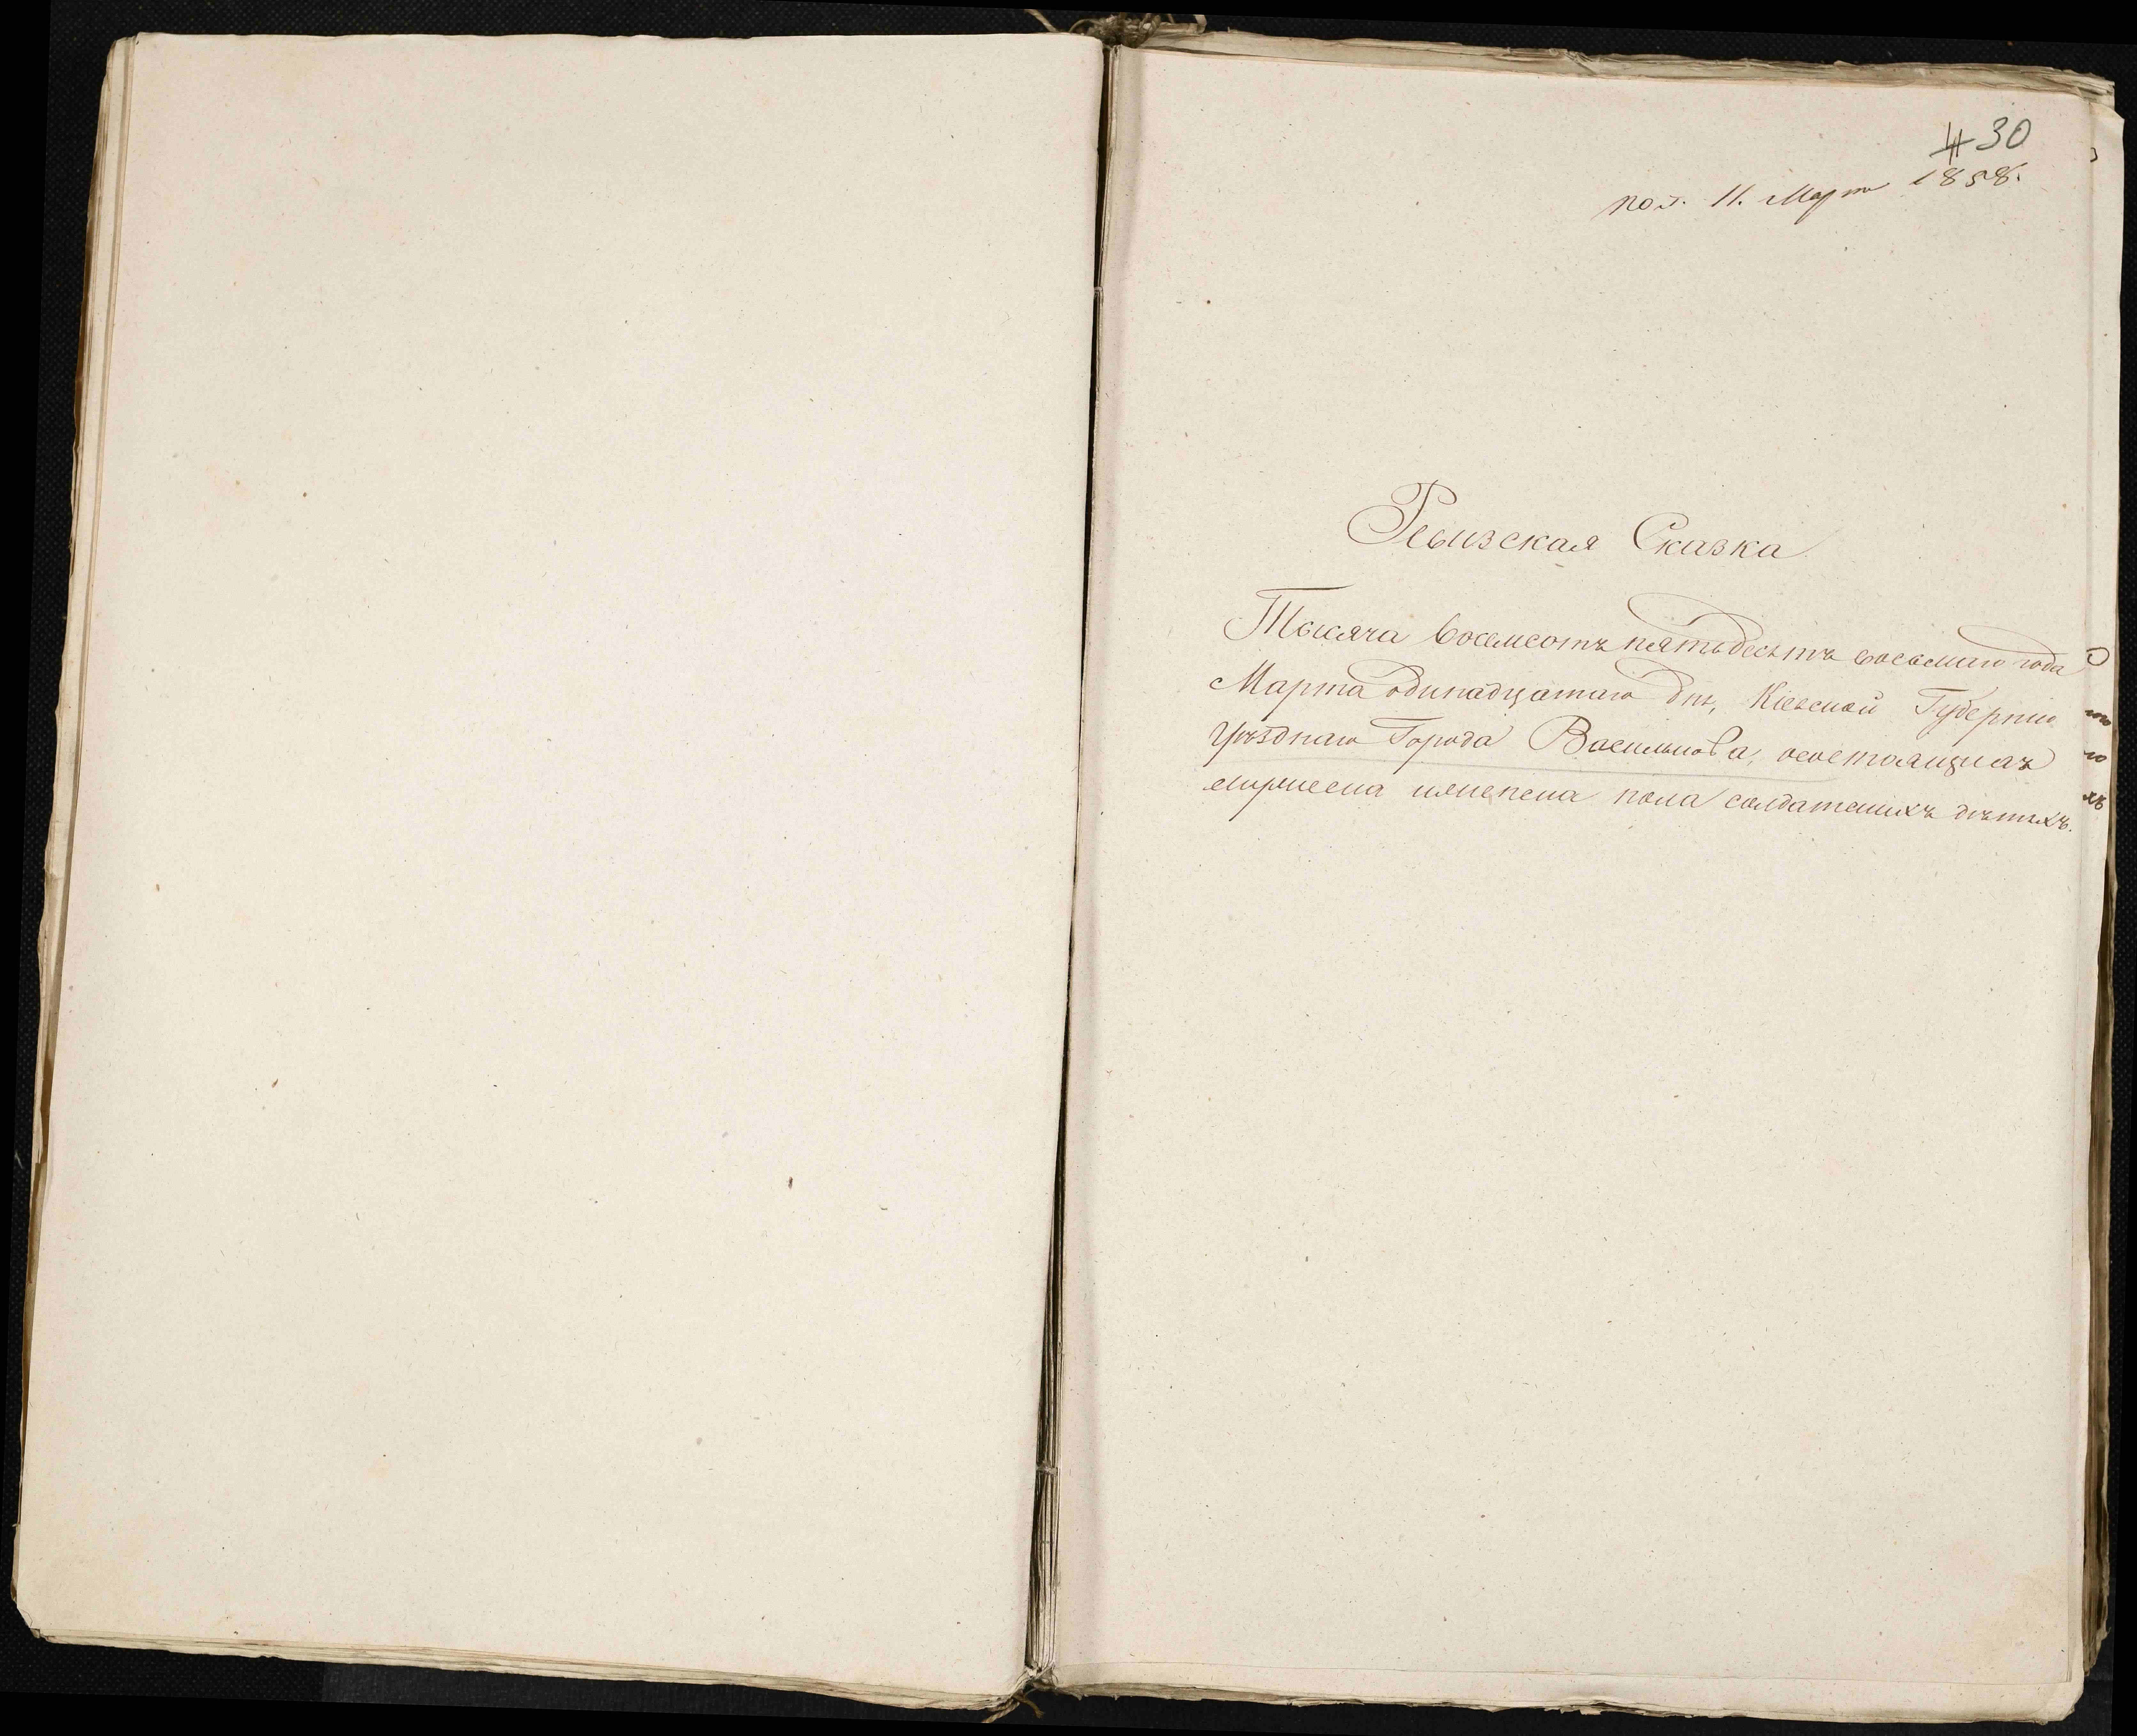 30
пол. 11. Марта 1858.
Ревизская Сказка
Тысяча восемсотъ пятьдесятъ восьмаго года
Марта одинадцатаго дня, Кіевской Губерніи
Уѣзднаго Города Василькова, осостоящихъ
мужеска иженска пола солдатскихъ дѣтяхъ.